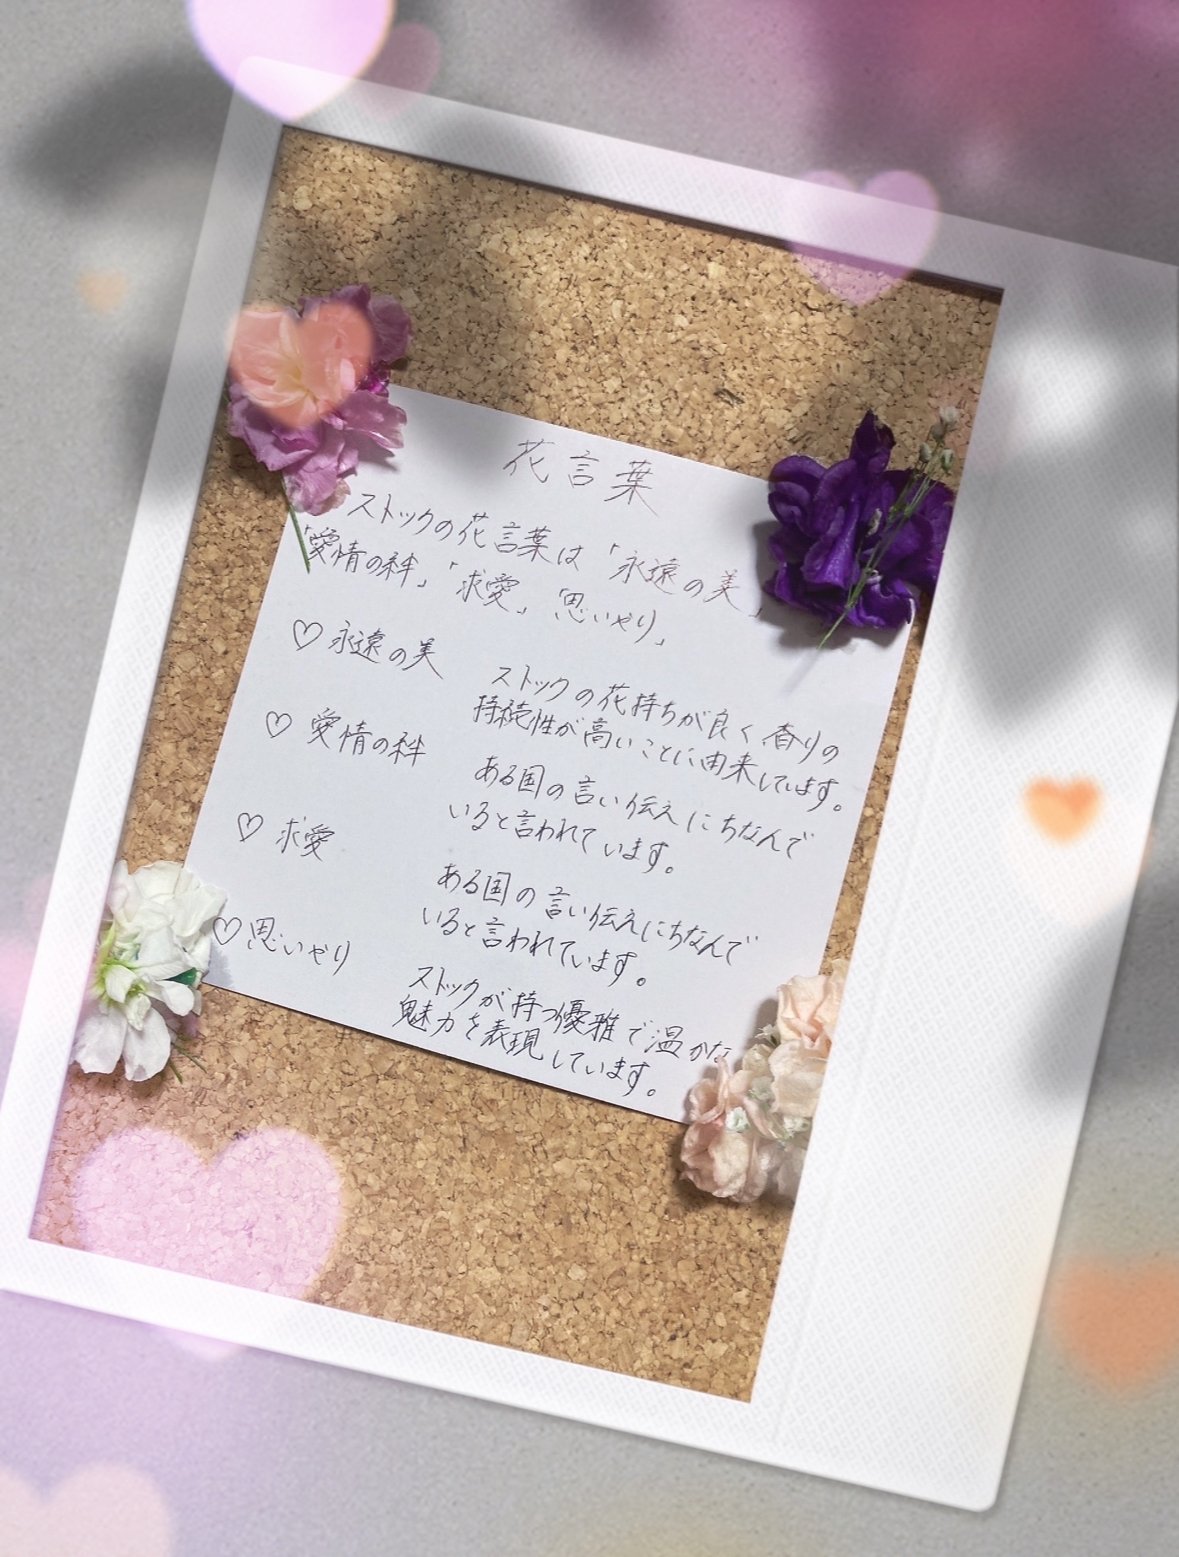 花言葉
ストックの花言葉は「永遠の美」
「愛情の絆」「求愛」「思いやり」
♡ 永遠の美
ストックの花持ちが良く香りの
持続性が高いことに由来しています。
♡ 愛情の絆
ある国の言い伝えにちなんで
いると言われています。
♡ 求愛
ある国の言い伝えにちなんで
いると言われています。
♡ 思いやり
ストックが持つ優雅で温かな
魅力を表現しています。